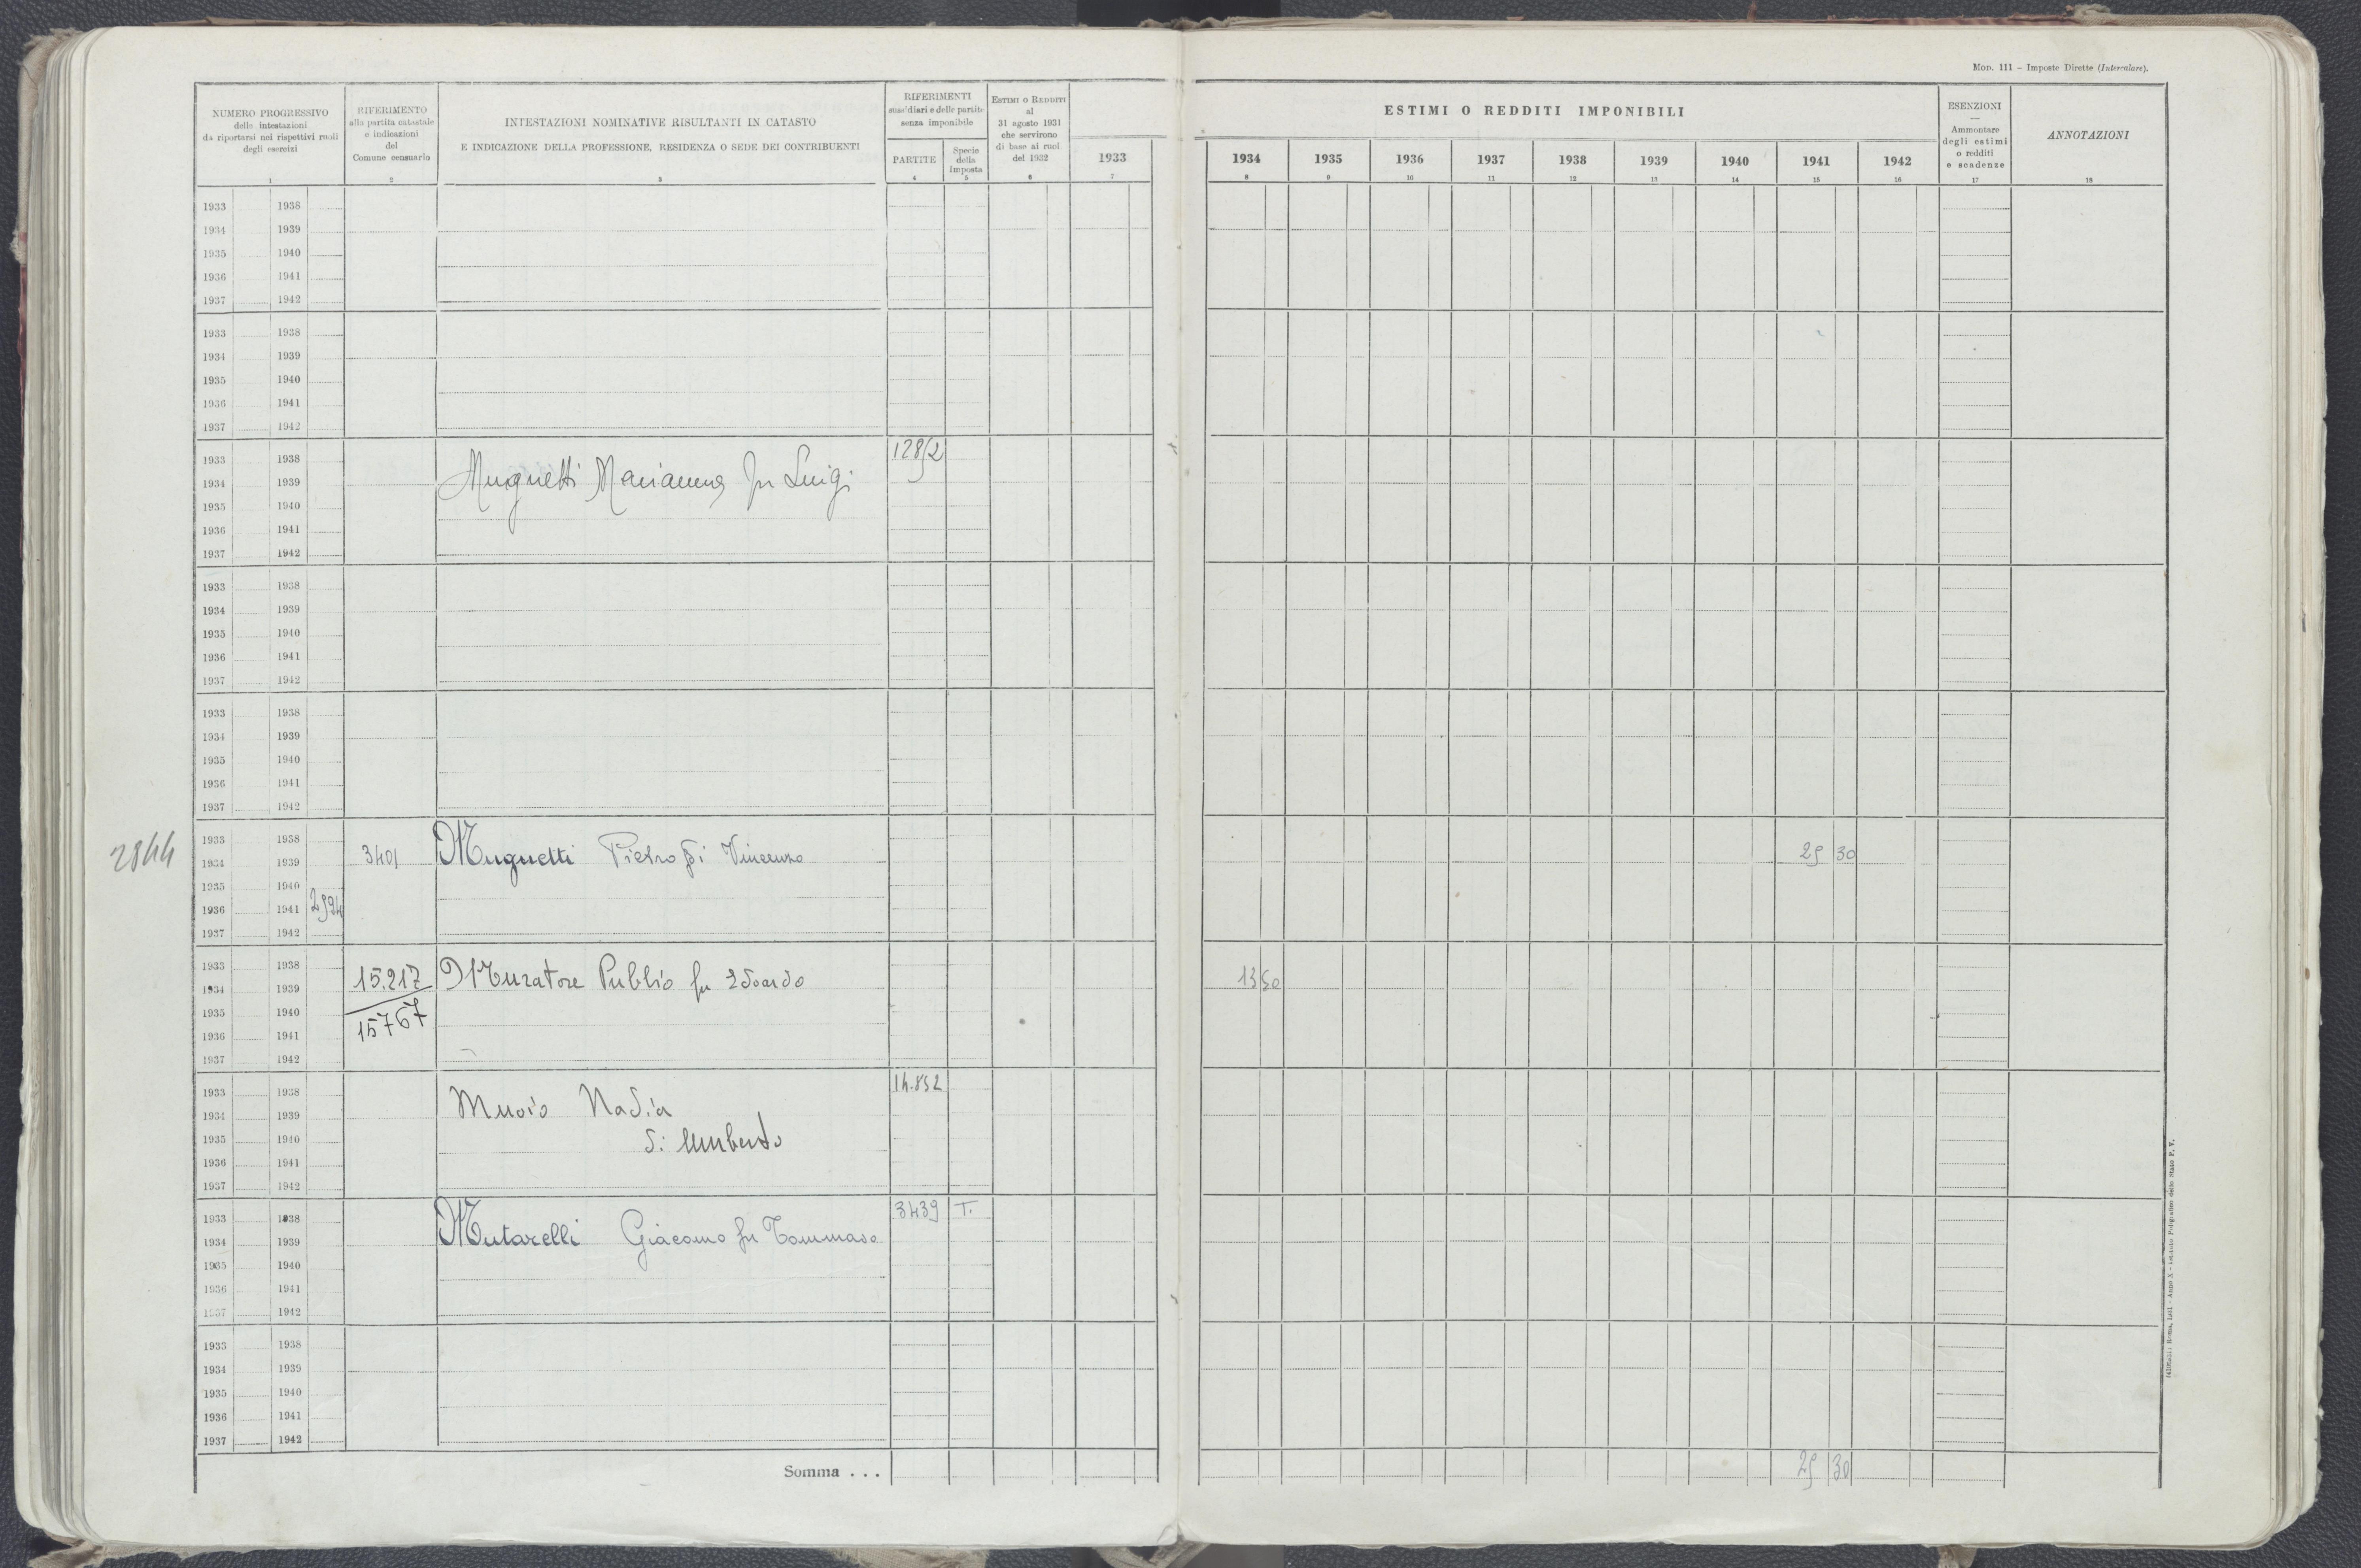 Mod. 111 – Imposte Dirette (Intercalare).
NUMERO PROGRESSIVO
delle intestazioni
da riportarsi nei rispettivi ruoli
degli esercizi
1
RIFERIMENTO
alla partita catastale
e indicazioni
del
Comune censuario
2
INTESTAZIONI NOMINATIVE RISULTANTI IN CATASTO
E INDICAZIONE DELLA PROFESSIONE, RESIDENZA O SEDE DEI CONTRIBUENTI
3
RIFERIMENTI
sussidiari e delle partite
senza imponibile
PARTITE
4
Specie
della
Imposta
5
ESTIMI O REDDITI
al
31 agosto 1931
che servirono
di base ai ruoli
del 1932
6
1933
7
ESTIMI O REDDITI IMPONIBILI
1934 1935 1936 1937 1938 1939 1940 1941 1942
8 9 10 11 12 13 14 15 16
ESENZIONI
—
Ammontare
degli estimi
o redditi
e scadenze
17
ANNOTAZIONI
18
1933 1938
1934 1939
1935 1940
1936 1941
1937 1942
1933 1938
1934 1939
1935 1940
1936 1941
1937 1942
1933 1938 12852
1934 1939 Mugnetti Marianna fu Luigi
1935 1940
1936 1941
1937 1942
1933 1938
1934 1939
1935 1940
1936 1941
1937 1942
1933 1938
1934 1939
1935 1940
1936 1941
1937 1942
1933 1938
2844 1934 1939 3401 Mugnetti Pietro di Vincenzo 25 30
1935 1940
1936 1941 2594
1937 1942
1933 1938
1934 1939 15.217 Muratore Publio fu Edoardo 13 50
1935 1940 15767
1936 1941
1937 1942
1933 1938 14.852
1934 1939 Muoio Nadia
1935 1940 di Umberto
1936 1941
1937 1942
1933 1938 3439 T.
1934 1939 Mutarelli Giacomo fu Tommaso
1935 1940
1936 1941
1937 1942
1933 1938
1934 1939
1935 1940
1936 1941
1937 1942
Somma . . . 25 30